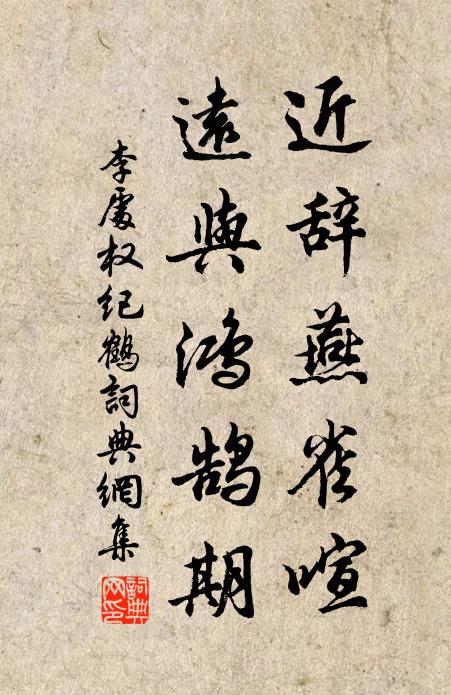 近辞燕雀喧
遠與鴻鵠期
李處权纪鶴詞典網集
詞典
网印